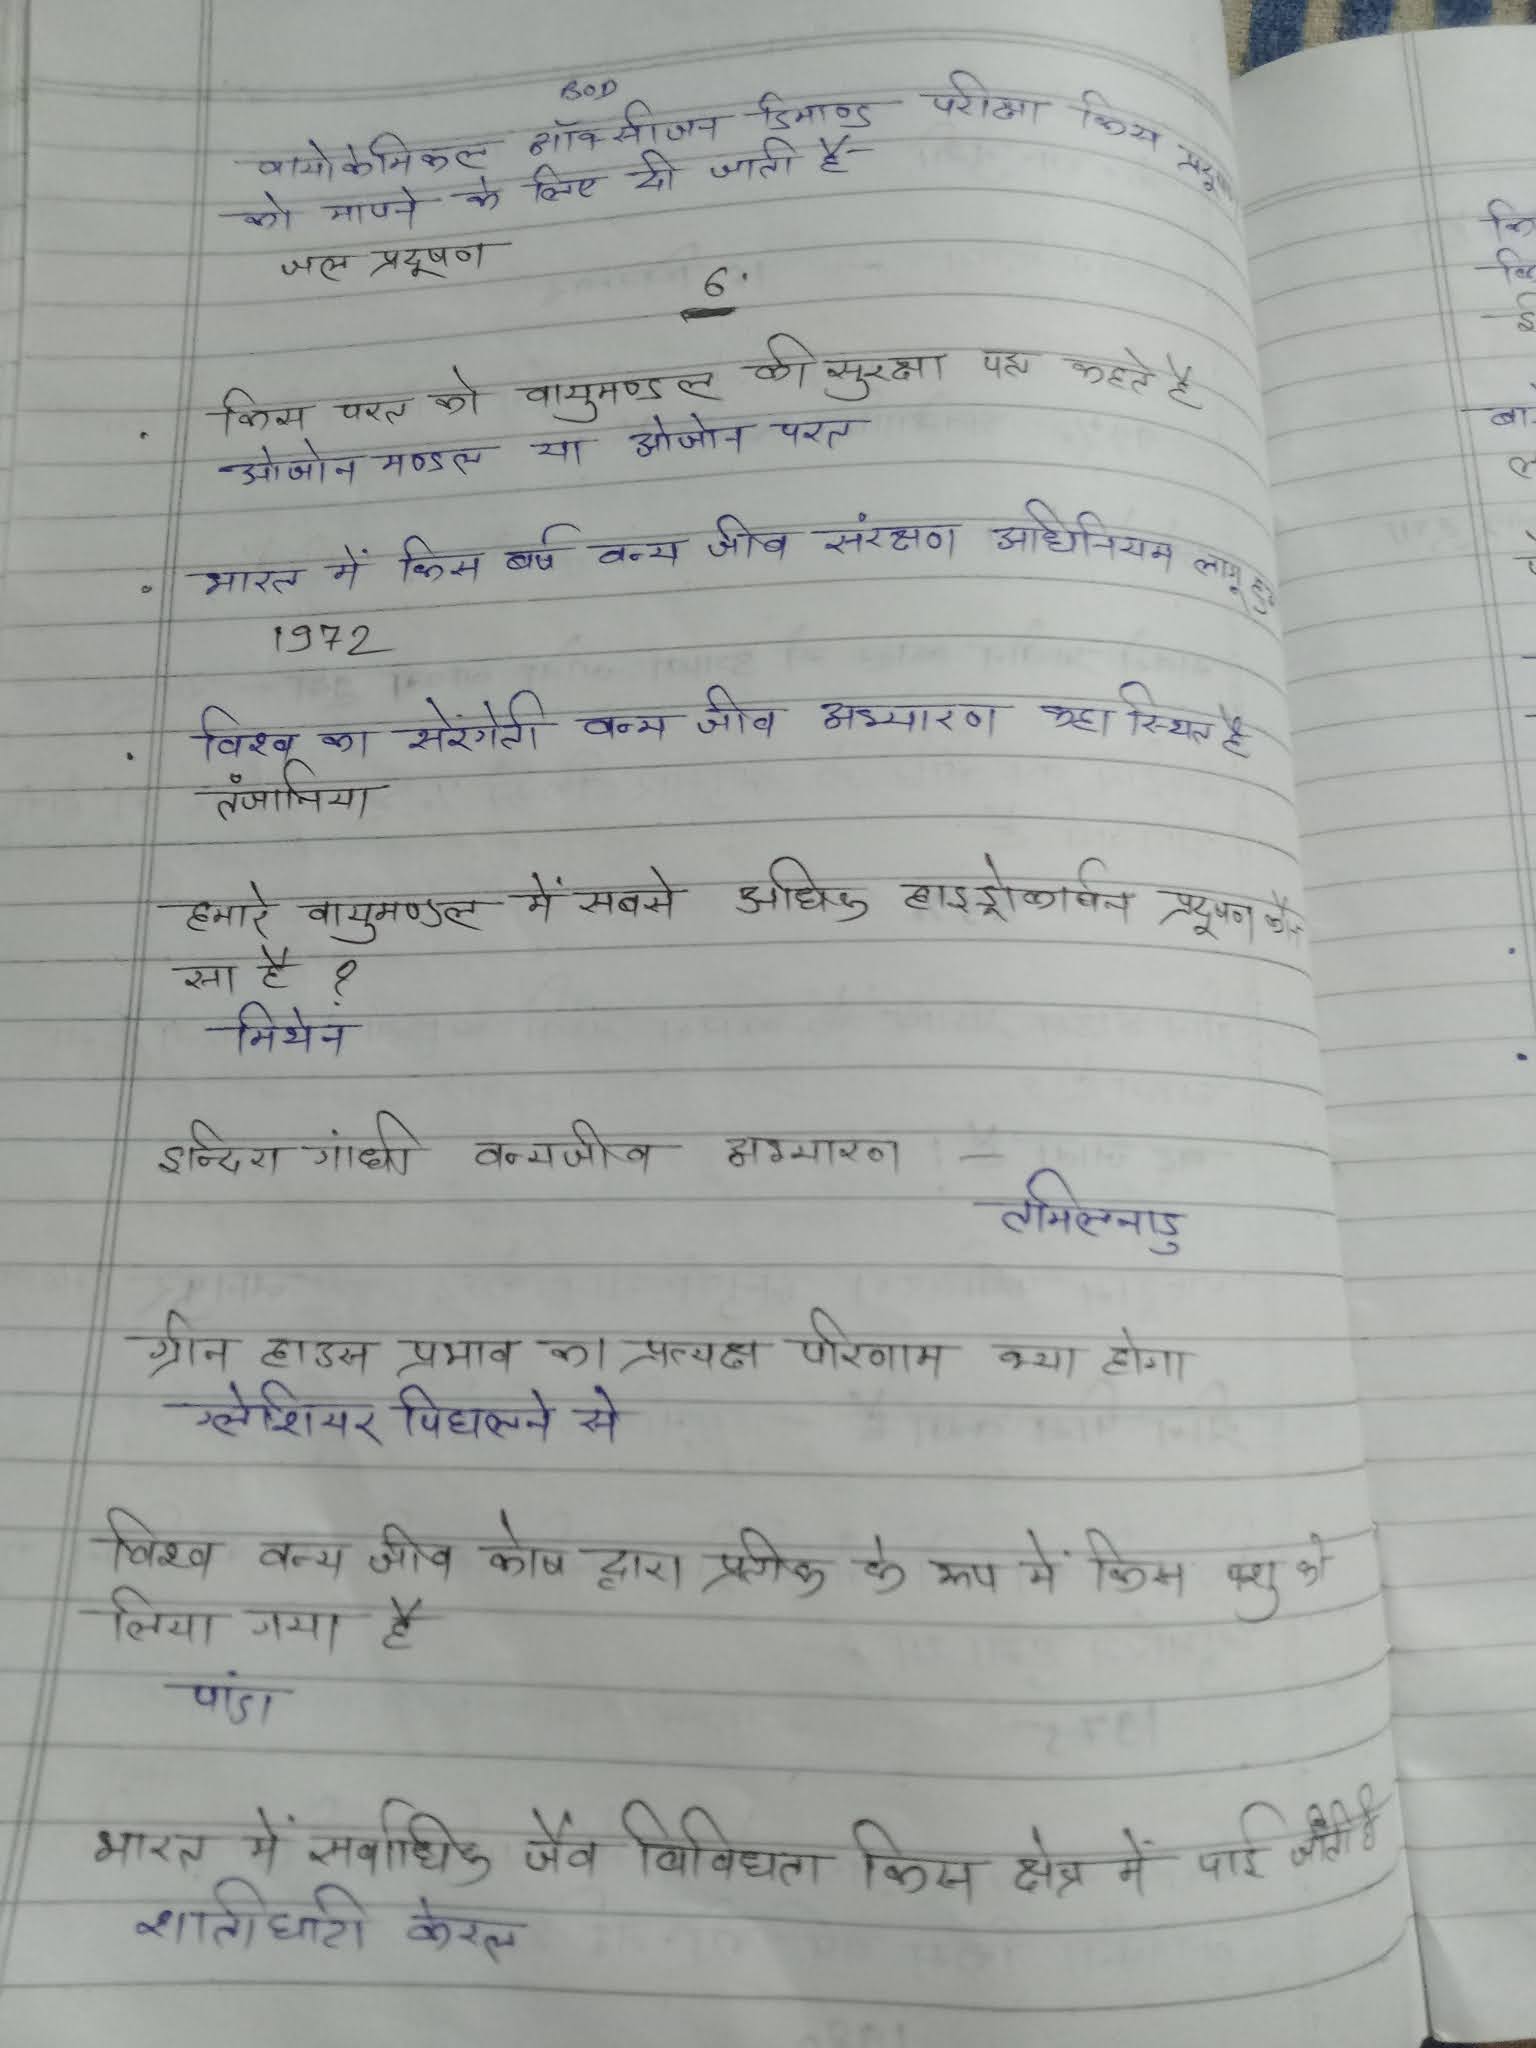 BOD
वायोकेमिकल ऑक्सीजन डिमाण्ड परीक्षा किस प्रदूषण
को मापने के लिए दी जाती है-
जल प्रदूषण
6.
किस परत को वायुमण्डल की सुरक्षा कहते है
ओजोन मण्डल या ओजोन परत
भारत में किस बर्ष वन्य जीव संरक्षण अधिनियम लागू हुआ
1972
विश्व का सेरेंगेती वन्य जीव अभ्यारण कहा स्थित है
तंजानिया
हमारे वायुमण्डल में सबसे अधिक हाइड्रोकार्वन प्रदूषण कौन
सा है ?
मिथेन
इन्दिरा गांधी वन्यजीव अभ्यारण =
तमिलनाडु
ग्रीन हाउस प्रभाव का प्रत्यक्ष परिणाम क्या होगा
ग्लेशियर पिघलने से
विश्व वन्य जीव कोष द्वारा प्रतीक के रूप में किस पशु को
लिया गया है
पांडा
भारत में सर्वाधिक जैव विविधता किस क्षेत्र में पाई जाती है
शातीघाटी केरल